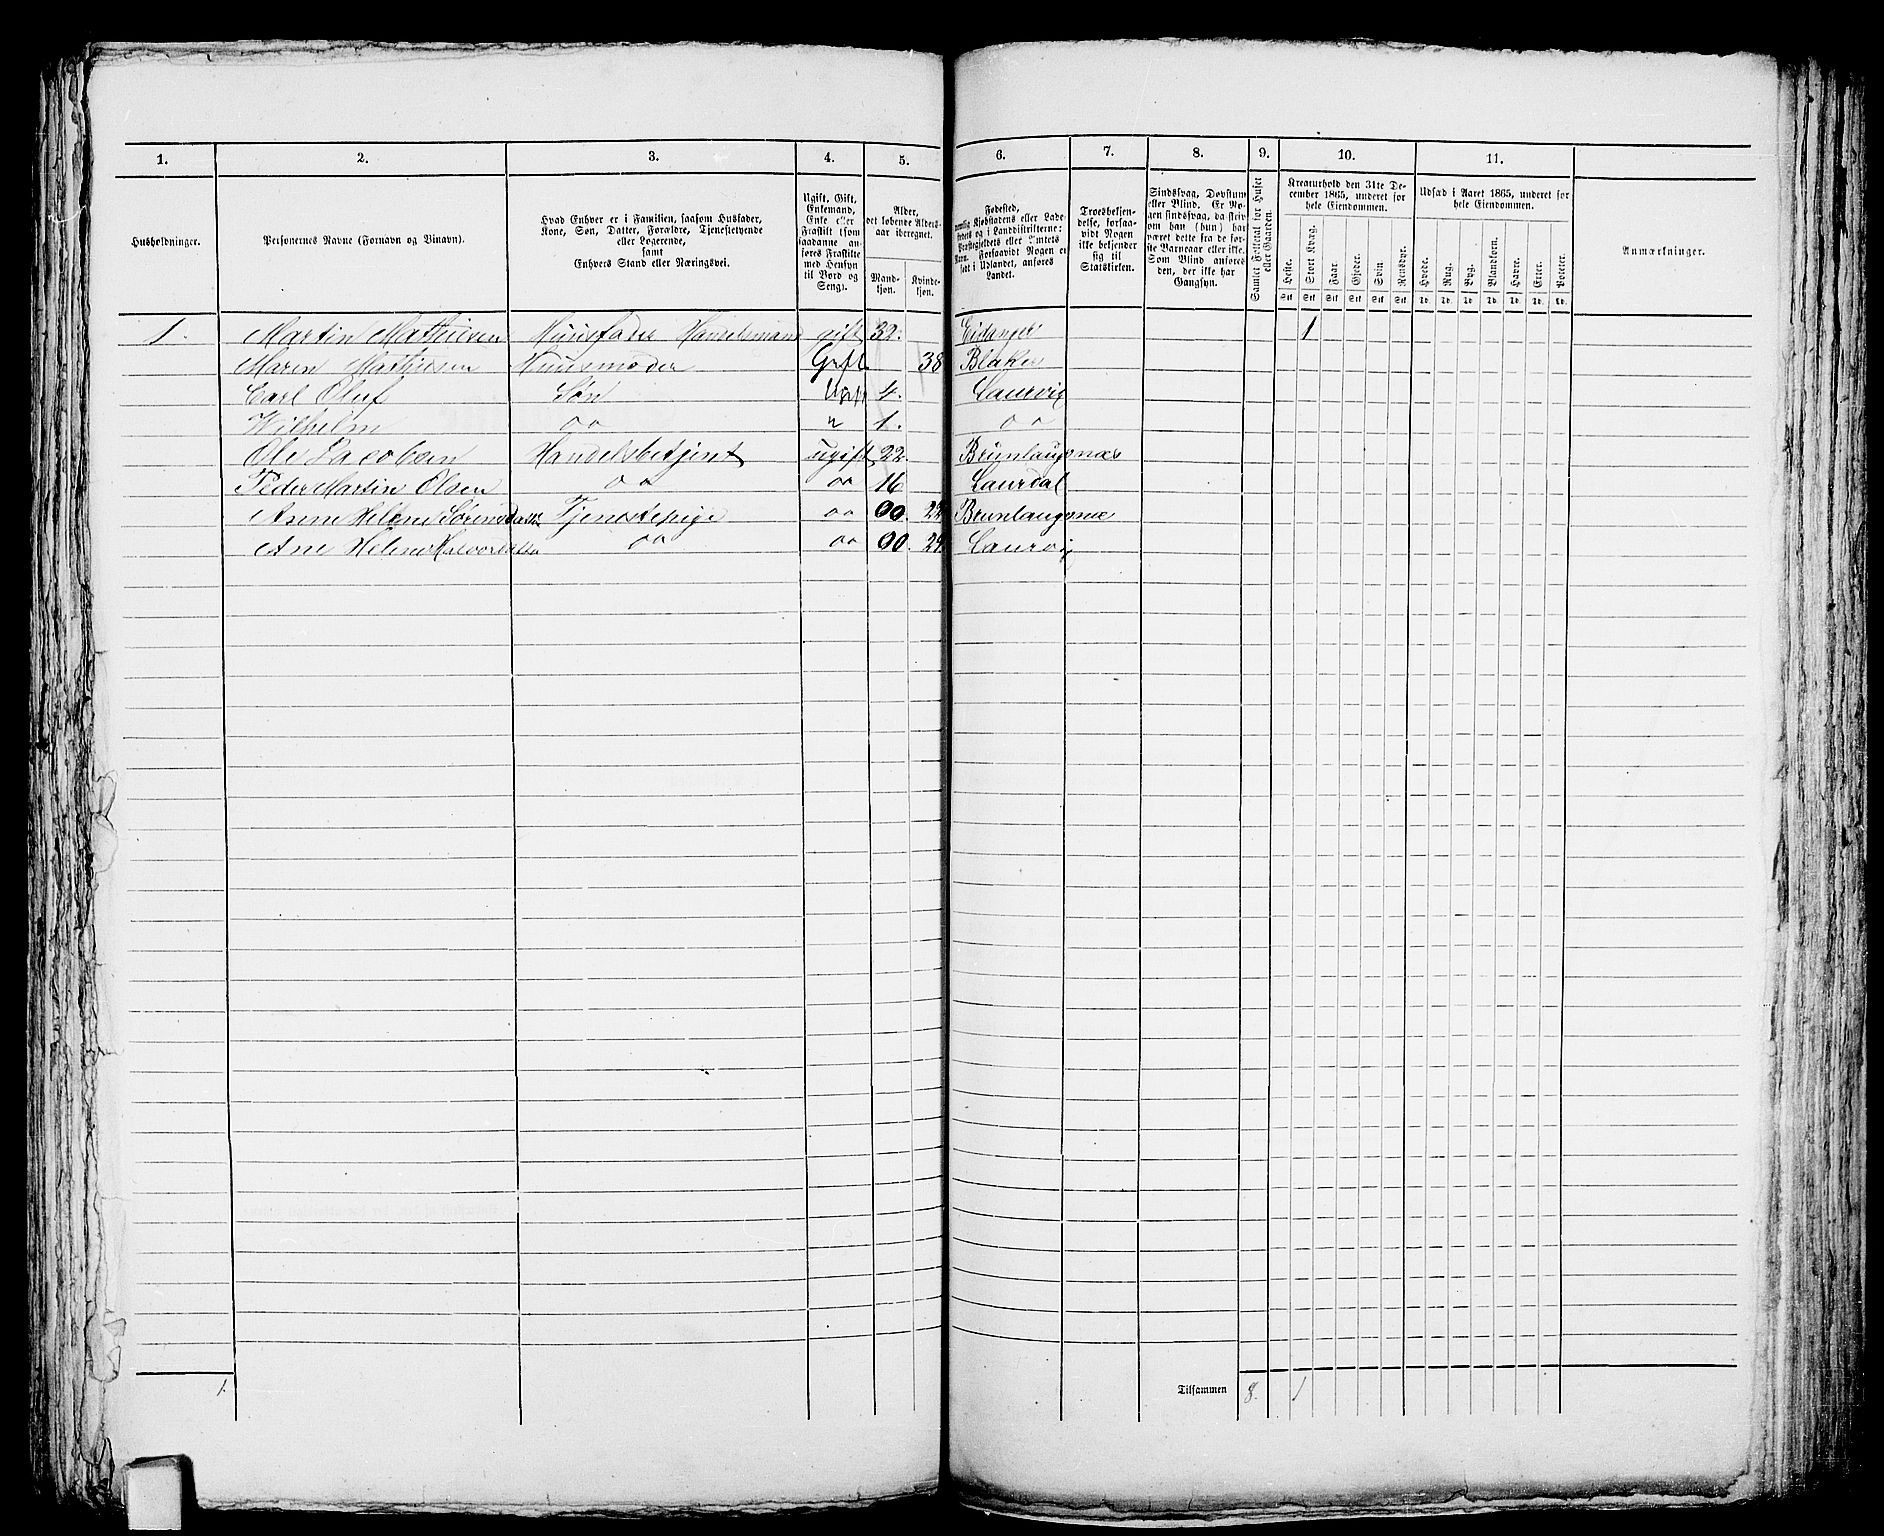 1. 2. 3. 4. 5. 6. 7. 8. 9. 10. 11.
Husholdninger.
Personernes Navne (Fornavn og Tilnavn).
Hvad Enhver er i Familien, saasom Husfader,
Kone, Søn, Datter, Forældre, Tjenestetyende
eller Logerende,
samt
Enhvers Stand eller Næringsvei.
Ugift, Gift,
Enkemand,
Enke eller
Fraskilt (som
saadanne an-
føres Fraskilte
med Hensyn
til Bord og
Seng).
Alder,
det løbende Alders-
aar iberegnet.
Mand-
kjøn.
Kvinde-
kjøn.
Fødested,
nemlig Kjøbstadens eller Lade-
stedets og i Landdistrikterne:
Præstegjeldets eller Amtets
Navn. Forsaavidt Nogen er
født i Udlandet, anføres
Landet.
Troesbekjen-
delse, forsaa-
vidt Nogen
ikke bekjender
sig til
Statskirken.
Sindssvag, Døvstum
eller Blind. Er No-
gen sindssvag, da skriv
om han (hun) har
været dette fra de før-
ste Barneaar eller ikke.
Som Blind anføres
den, der ikke har
Gangsyn.
Samlet Folketal for Huset
eller Gaarden.
Kreaturhold den 31te De-
cember 1865, underet for
hele Eiendommen.
Heste. Stort Kvæg. Faar. Gjeder. Svin. Rensdyr.
Stk Stk Stk Stk Stk Stk
Udsæd i Aaret 1865, underet for
hele Eiendommen.
Hvede. Rug. Byg. Blandkorn. Havre. Erter. Poteter.
Td. Td. Td. Td. Td. Td. Td.
Anmærkninger.
1. Martin Mathiesen Huusfader Handelsmand gift 32. Eidanger 1
Maren Mathiesen Huusmoder Gift 38 Blaker
Carl Oluf Søn Ugift 4. Laurvig
Wilhelm oo " 1. oo
Ole Jacobsen Handelsbetjent ugift 22. Brunlaugsnæs
Peder Martin Olsen oo oo 16 Laurdal
Anne Helene Sørensdatter Tjenestepige oo 00. 22 Brunlaugsnæs
Ane Helene Halvorsdatter oo oo 00. 29 Laurvig
1. Tilsammen 8. 1